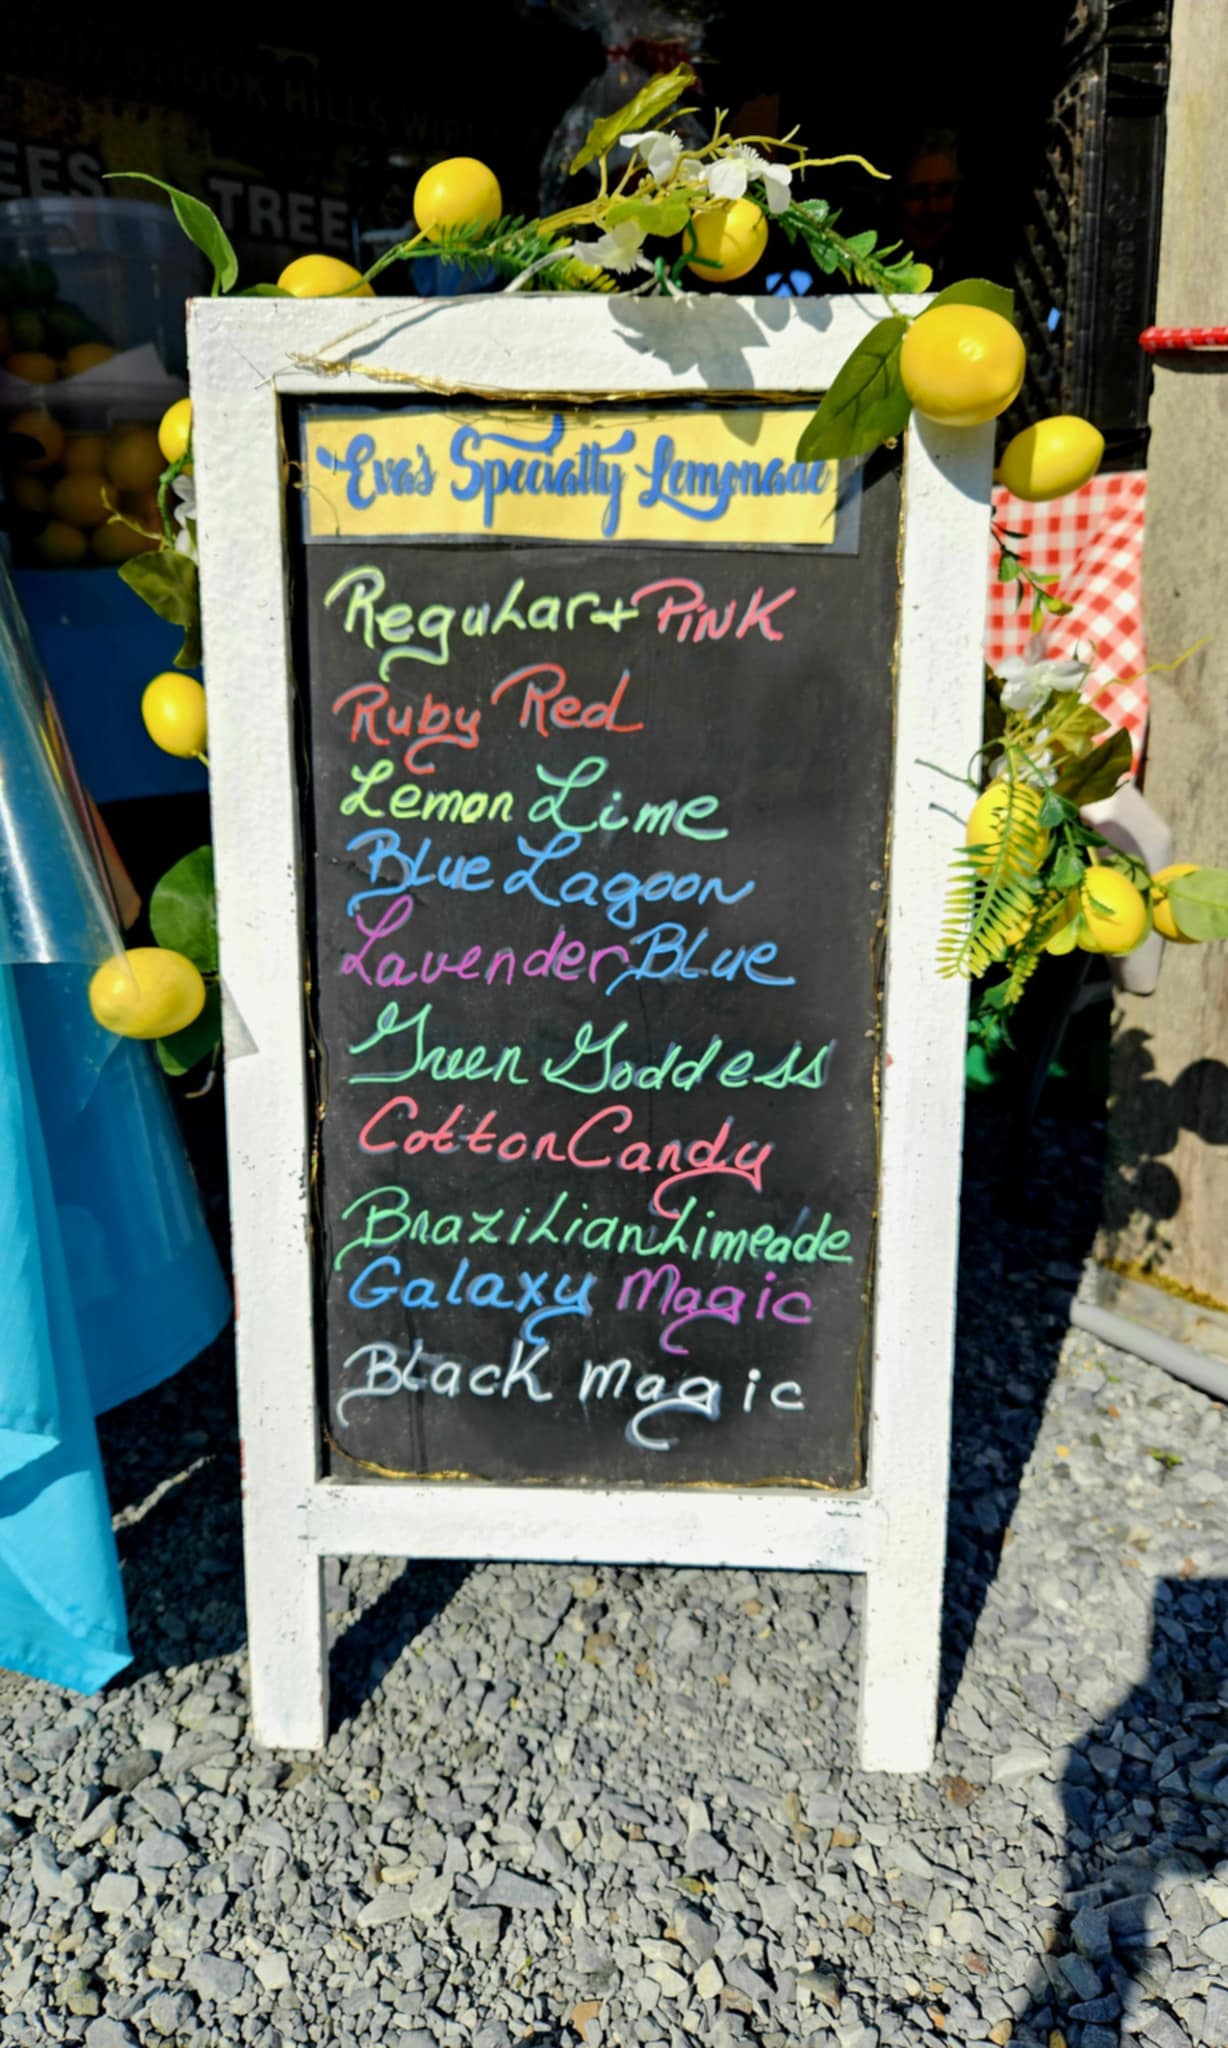 BROOK HILLS
EES TREE
Eva's Specialty Lemonade
Regular + Pink
Ruby Red
Lemon Lime
Blue Lagoon
Lavender Blue
Green Goddess
Cotton Candy
Brazilian Limeade
Galaxy Magic
Black Magic